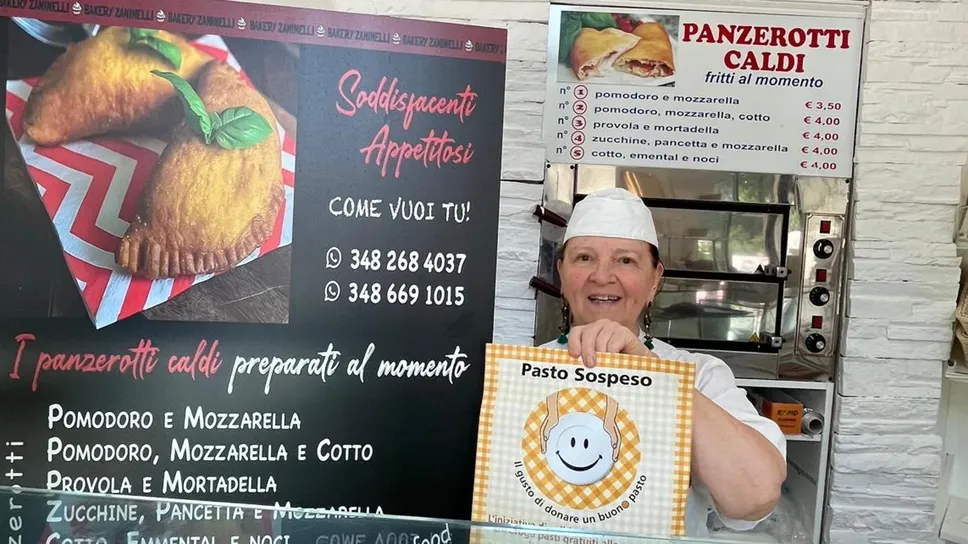 BAKERY ZANINELLI BAKERY ZANINELLI BAKERY ZANINELLI BAKERY ZANINELLI
Soddisfacenti
Appetitosi
COME VUOI TU!
348 268 4037
348 669 1015
I panzerotti caldi preparati al momento
POMODORO E MOZZARELLA
POMODORO, MOZZARELLA E COTTO
PROVOLA E MORTADELLA
ZUCCHINE, PANCETTA E MOZZARELLA
COTTO, EMENTAL E NOCI
PANZEROTTI
CALDI
fritti al momento
n° 1 pomodoro e mozzarella € 3,50
n° 2 pomodoro, mozzarella, cotto € 4,00
n° 3 provola e mortadella € 4,00
n° 4 zucchine, pancetta e mozzarella € 4,00
n° 5 cotto, emental e noci € 4,00
Pasto Sospeso
Il gusto di donare un buono pasto